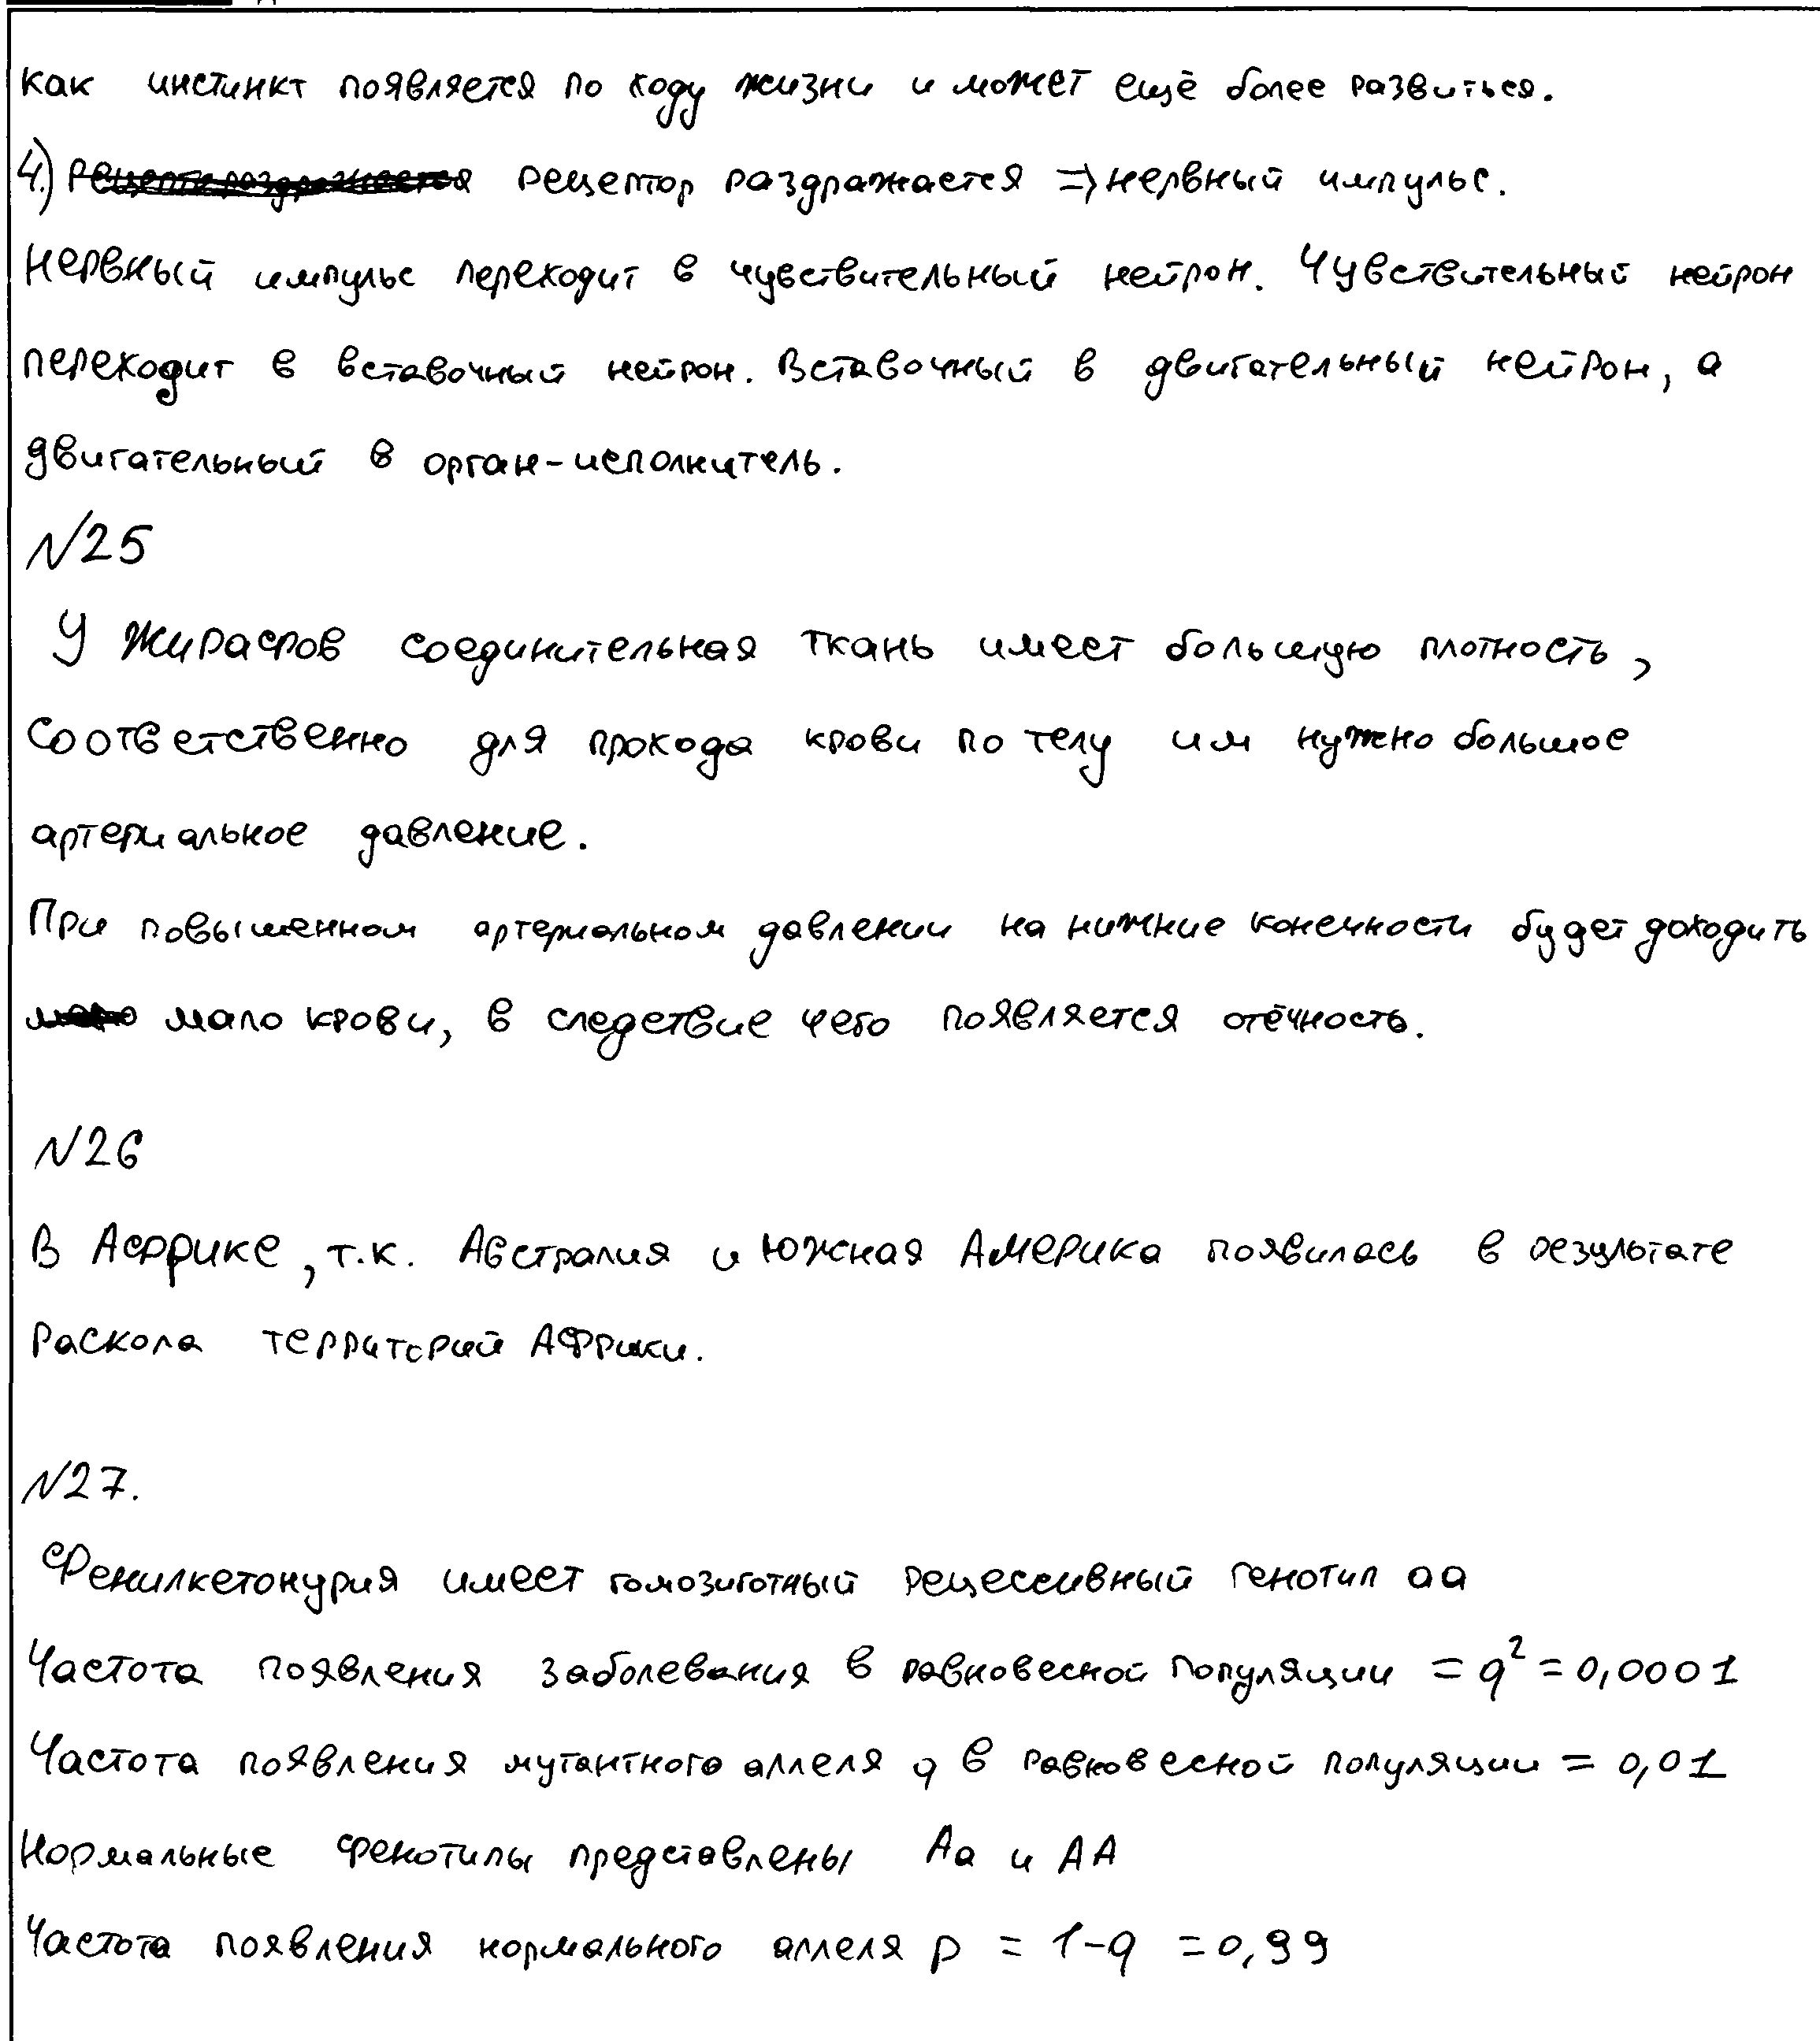 как инстинкт появляется по ходу жизни и может ещё более развиться.
4.) рецептор раздражается => нервный импульс.
Нервный импульс переходит в чувствительный нейрон. Чувствительный нейрон
переходит в вставочный нейрон. Вставочный в двигательный нейрон, а
двигательный в орган-исполнитель.
N25
У жирафов соединительная ткань имеет большую плотность,
соответственно для прохода крови по телу им нужно большое
артериальное давление.
При повышенном артериальном давлении на нижние конечности будет доходить
мало крови, в следствие чего появляется отёчность.
N26
В Африке, т.к. Австралия и Южная Америка появилась в результате
раскола территорий Африки.
N27.
Фенилкетонурия имеет гомозиготный рецессивный генотип aa
Частота появления заболевания в равновесной популяции = q² = 0,0001
Частота появления мутантного аллеля q в равновесной популяции = 0,01
Нормальные фенотипы представлены Aa и AA
Частота появления нормального аллеля p = 1-q = 0,99